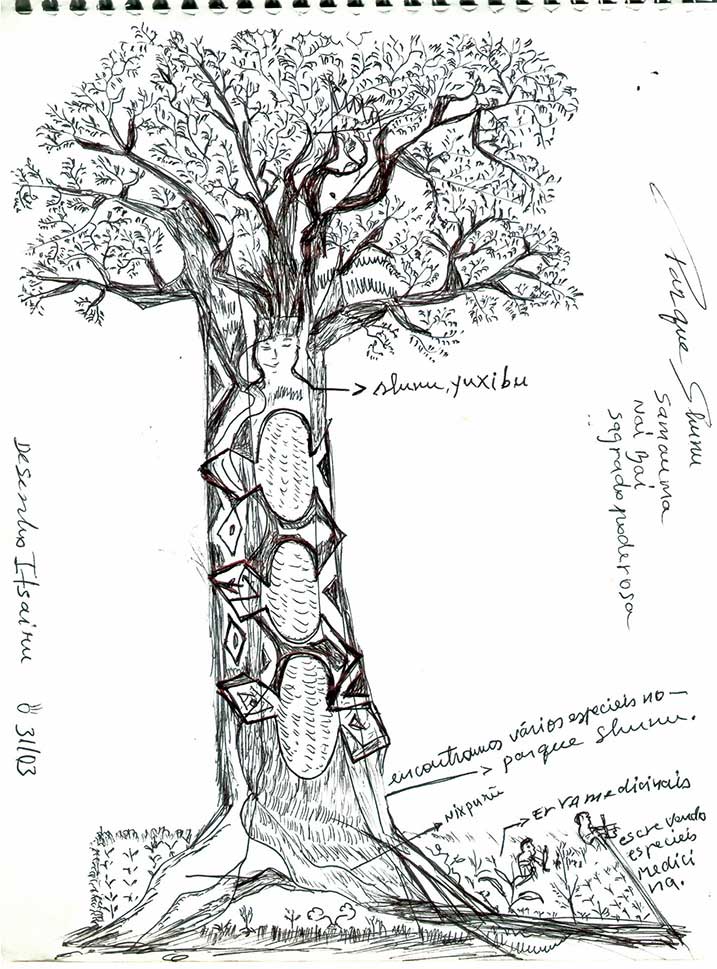 shunu, yuxibu
Parque Shunu
samauma
Nai Bai
sagrado poderosa
Desenho Itsairu 31/03
encontramos vários especieis no-
parque shunu.
nixpunū
Ervamedicinais
escrevendo
especieis
medici
na.